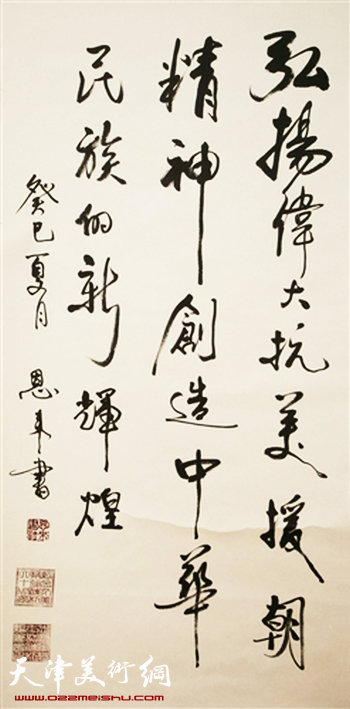 弘揚偉大抗美援朝
精神創造中華
民族的新輝煌
癸巳夏月 恩来書
天津美術網
www.022meishu.com